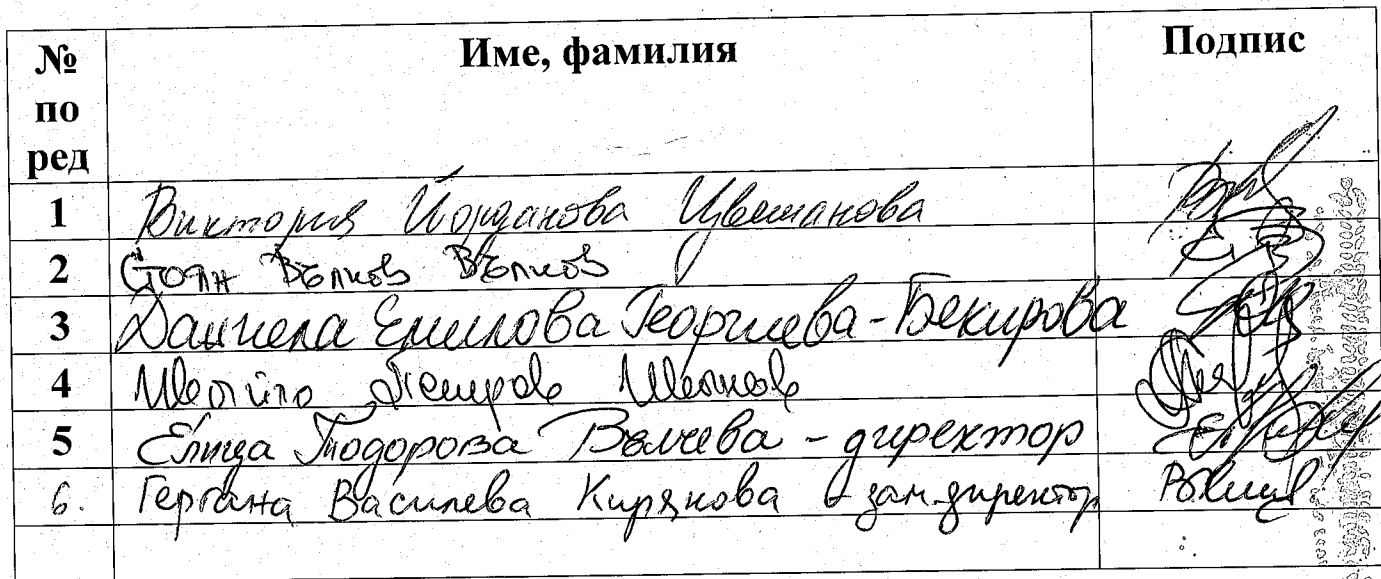 № по ред Име, фамилия Подпис
1 Виктория Йорданова Цветанова
2 Стоян Вълков Вълков
3 Даниела Емилова Георгиева-Бекирова
4 Петров
5 Елица Тодорова Вълчева - директор
6. Гергана Василева Кирякова - зам. директор